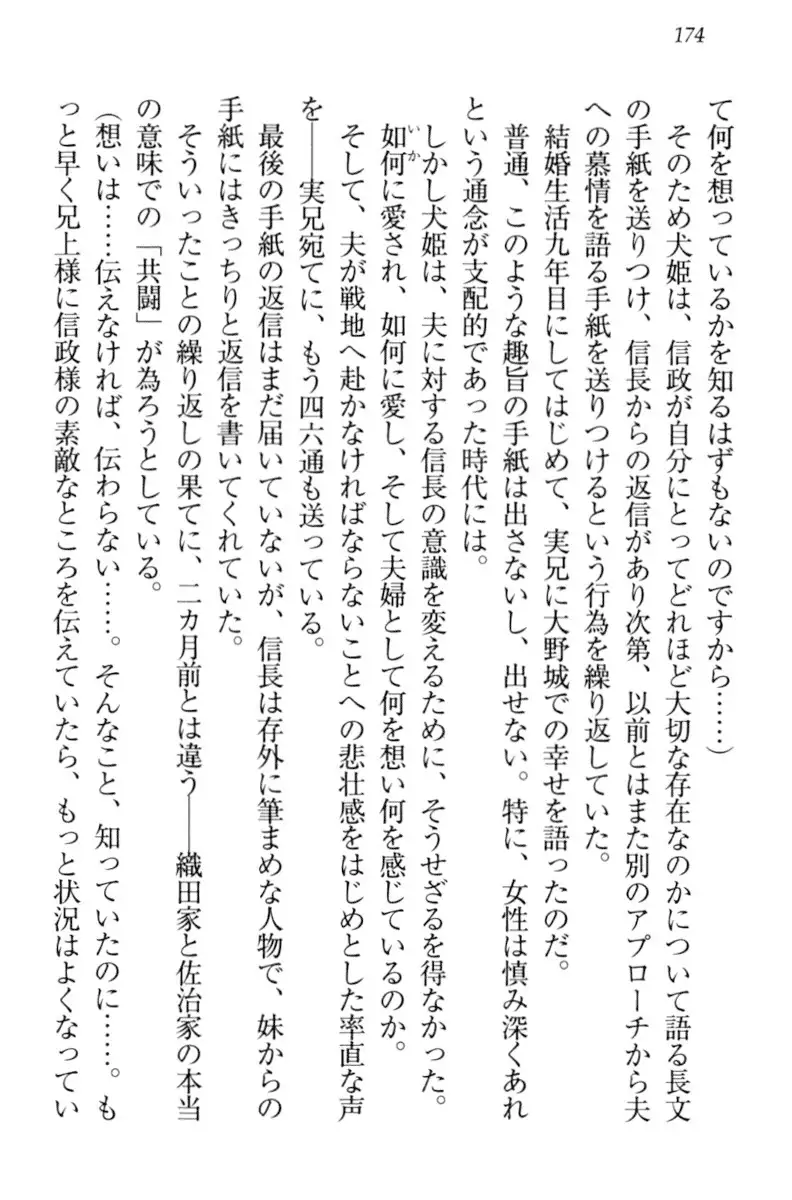 174
て何を想っているかを知るはずもないのですから……)
そのため犬姫は、信政が自分にとってどれほど大切な存在なのかについて語る長文
の手紙を送りつけ、信長からの返信があり次第、以前とはまた別のアプローチから夫
への慕情を語る手紙を送りつけるという行為を繰り返していた。
結婚生活九年目にしてはじめて、実兄に大野城での幸せを語ったのだ。
普通、このような趣旨の手紙は出さないし、出せない。特に、女性は慎み深くあれ
という通念が支配的であった時代には。
しかし犬姫は、夫に対する信長の意識を変えるために、そうせざるを得なかった。
如何に愛され、如何に愛し、そして夫婦として何を想い何を感じているのか。
いか
そして、夫が戦地へ赴かなければならないことへの悲壮感をはじめとした率直な声
を――実兄宛てに、もう四六通も送っている。
最後の手紙の返信はまだ届いていないが、信長は存外に筆まめな人物で、妹からの
手紙にはきっちりと返信を書いてくれていた。
そういったことの繰り返しの果てに、二カ月前とは違う――織田家と佐治家の本当
の意味での「共闘」が為ろうとしている。
(想いは……伝えなければ、伝わらない……。そんなこと、知っていたのに……。も
っと早く兄上様に信政様の素敵なところを伝えていたら、もっと状況はよくなってい